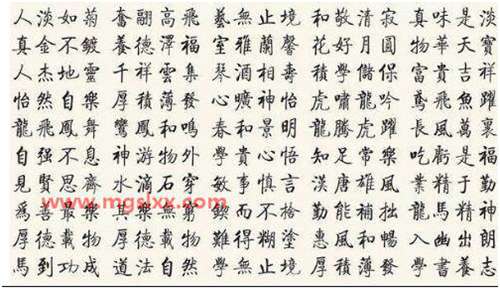 人淡如菊 奮翮高飛 藝無止境 和敬清寂 真味是淡
真金不鍍 養德澤福 室雅蘭馨 花好月圓 物華天寶
人杰地靈 千祥雲集 琴酒相壽 學儲保 富貴吉祥
怡然自樂 厚積薄發 心曠神怡 虎嘯龍吟 鳶飛魚躍
龍飛鳳舞 鸞鳳和鳴 春和景明 龍騰虎躍 長風萬裏
自强不息 神游物外 學貴心悟 知足常樂 吃虧是福
見賢思齊 水滴石穿 敏事慎言 漢唐雄風 業精于勤
爲善最樂 其樂無窮 鍥而不 勤能補拙 龍馬精神
厚德載物 厚德載物 難得糊塗 惠風和暢 入幽出朗
馬到功成 道法自然 學無止境 厚積薄發 學書養志
www.mgslxx.com